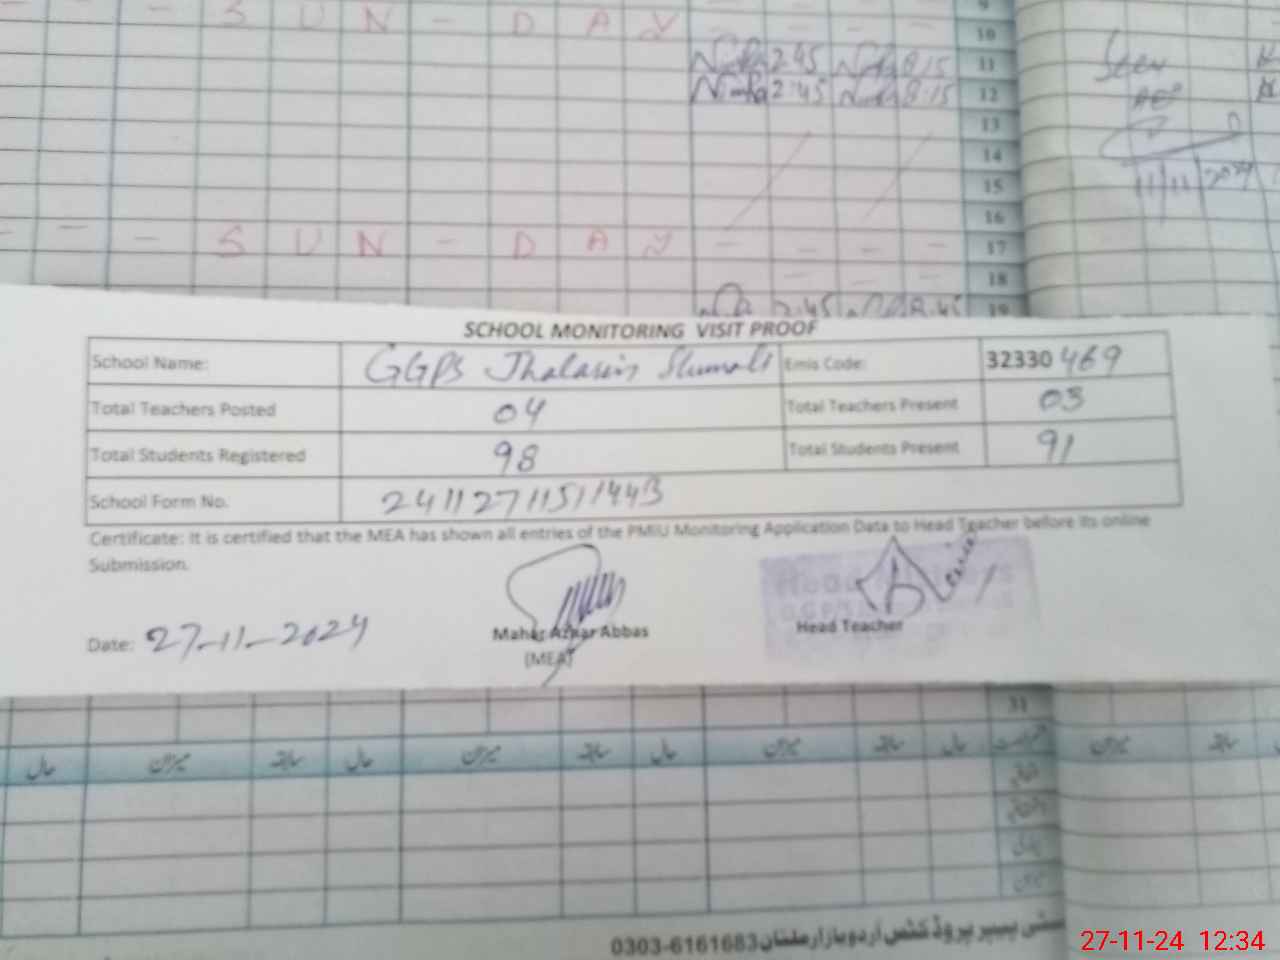 - - S U N - D A Y - - - -
9
10
2:45 8:15 11
2:45 8:15 12
13
14
15
16
- - - S U N - D A Y - - - - 17
18
2:45 8:45 19
Seen
AEO
11/11/2024
SCHOOL MONITORING VISIT PROOF
School Name: GGPS Emis Code: 32330469
Total Teachers Posted 04 Total Teachers Present 03
Total Students Registered 98 Total Students Present 91
School Form No.
Certificate: It is certified that the MEA has shown all entries of the PMIU Monitoring Application Data to Head Teacher before its online
Submission.
Date: 27-11-2024
Mahar Azhar Abbas
(MEA)
Head Teacher
31
حال میزان سابقہ حال میزان سابقہ حال میزان سابقہ حال میزان سابقہ
پیپر پروڈکٹس اردو بازار ملتان 0303-6161683
27-11-24 12:34